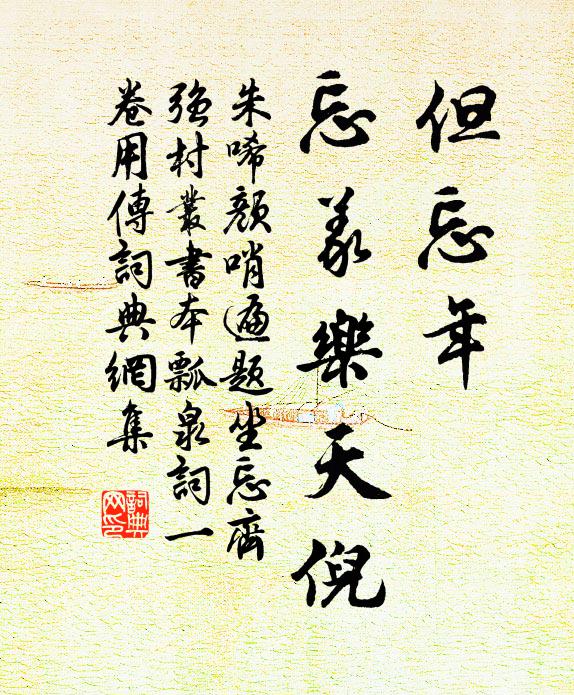 但忘年
忘義樂天倪
朱唏顏哨遍題坐忘齊
強村叢書本瓢泉詞一
卷用傳詞典網集
詞典
网印